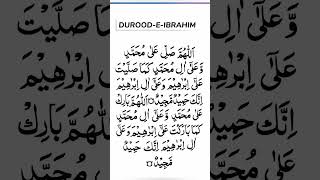 DUROOD-E-IBRAHIM
اَللّٰهُمَّ صَلِّ عَلٰى مُحَمَّدٍ
وَّعَلٰٓى اٰلِ مُحَمَّدٍ كَمَا صَلَّيْتَ
عَلٰٓى اِبْرٰهِيْمَ وَعَلٰٓى اٰلِ اِبْرٰهِيْمَ
اِنَّكَ حَمِيْدٌ مَّجِيْدٌ۝ اَللّٰهُمَّ بَارِكْ
عَلٰى مُحَمَّدٍ وَّعَلٰٓى اٰلِ مُحَمَّدٍ
كَمَا بَارَكْتَ عَلٰٓى اِبْرٰهِيْمَ وَعَلٰٓى
اٰلِ اِبْرٰهِيْمَ اِنَّكَ حَمِيْدٌ
مَّجِيْدٌ۝